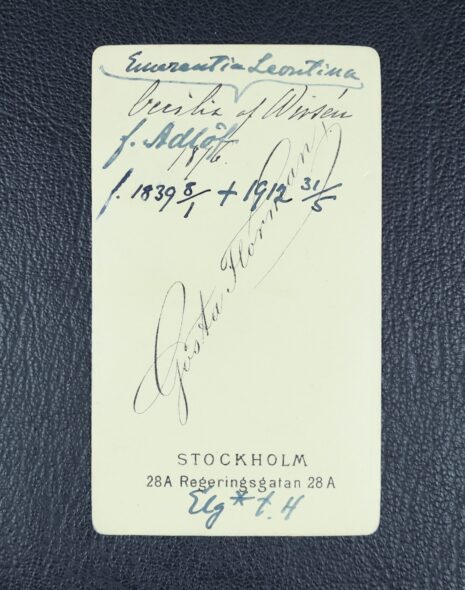 Emerentia Leontina
Cecilia af Wirsén
f. Adlöf
1876.
f. 1839 8/1 + 1912 31/5
Gösta Florman
STOCKHOLM
28A Regeringsgatan 28A
Elg * t. 4